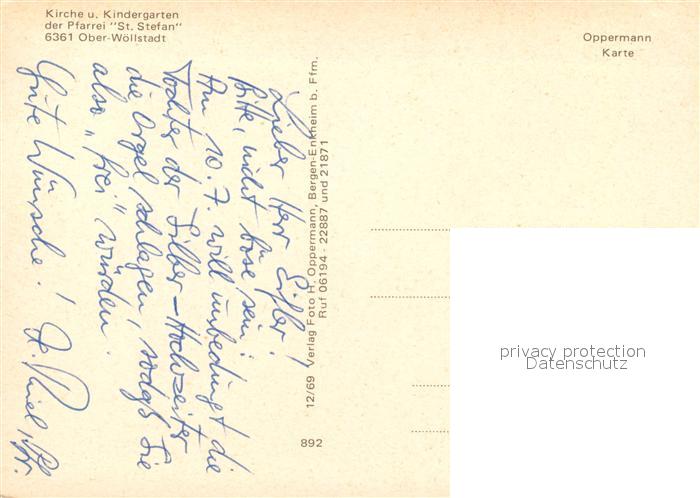 Kirche u. Kindergarten
der Pfarrei "St. Stefan"
6361 Ober-Wöllstadt
Oppermann
Karte
Lieber Herr Eifler!
Bitte, nicht böse sein:
Am 10.7. will unbedingt die
Tochter der Silber-Hochzeiter
die Orgel schlagen, sodaß Sie
also „frei" würden.
Gute Wünsche! Thiel, Pfr.
12/69 Verlag Foto H. Oppermann, Bergen-Enkheim b. Ffm.
Ruf 06194 - 22887 und 21871
892
privacy protection
Datenschutz